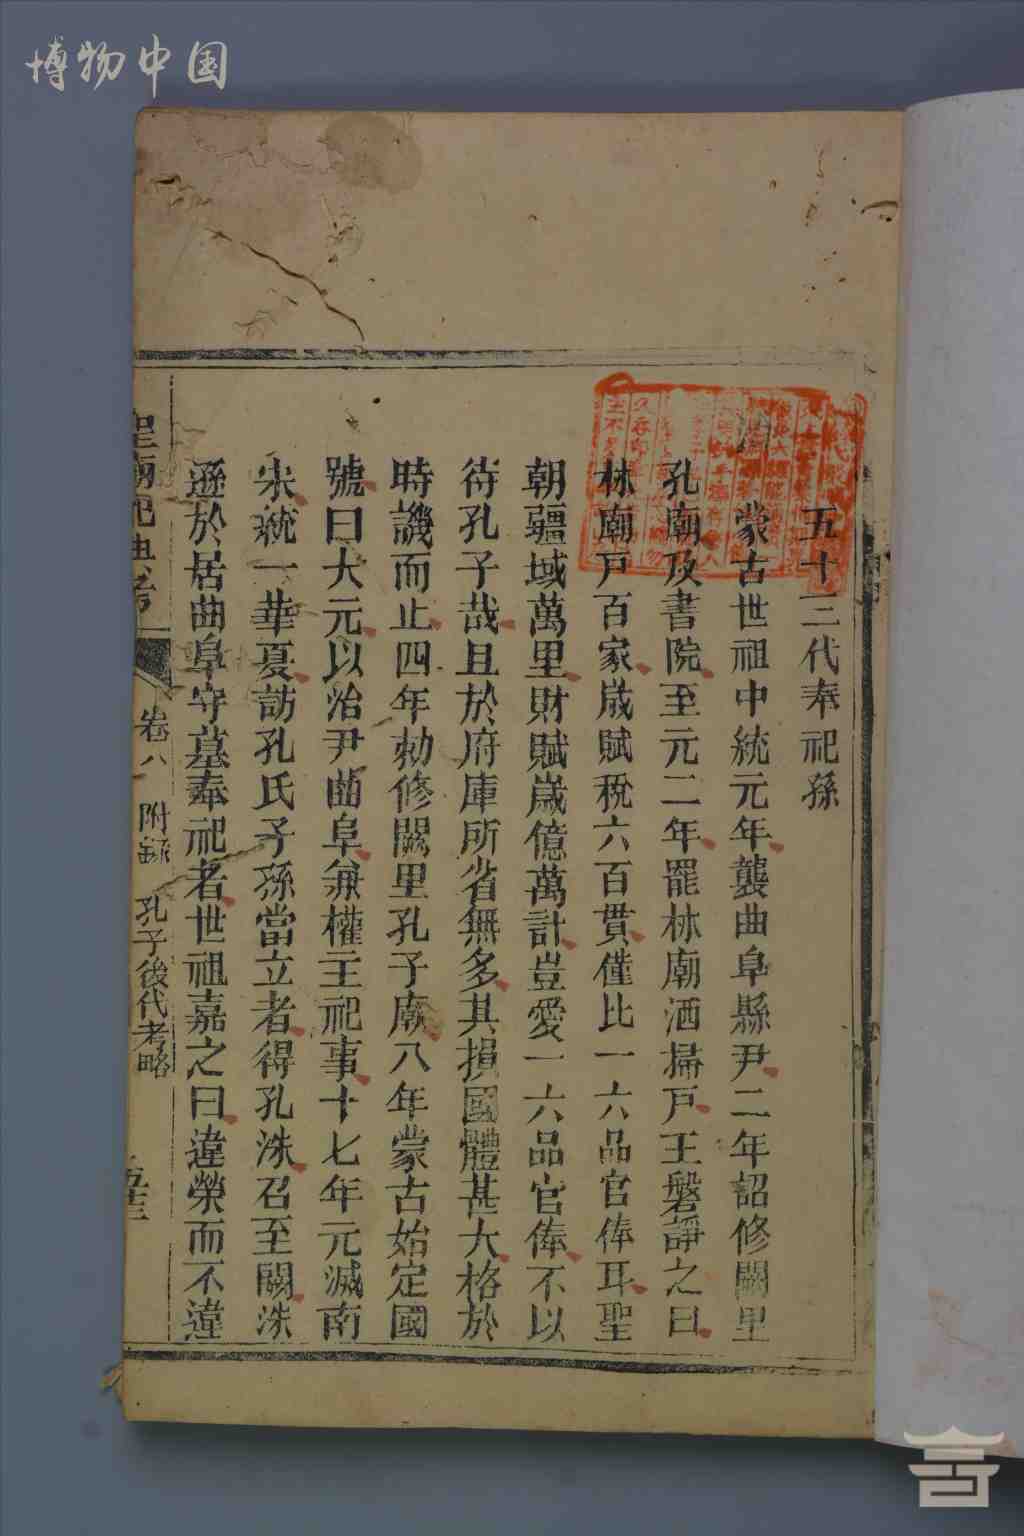 博物中国
治
五十三代奉祀孫
蒙古世祖中統元年襲曲阜縣尹二年詔修闕里
孔廟及書院至元二年罷林廟洒掃戸王磐諍之曰
林廟戸百家歳賦稅六百貫僅比一六品官俸耳聖
朝疆域萬里財賦歲億萬計豈愛一六品官俸不以
待孔子哉且於府庫所省無多其損國體甚大格於
時議而止四年勑修闕里孔子廟八年蒙古始定國
號曰大元以治尹曲阜兼權主祀事十七年元滅南
宋統一華夏訪孔氏子孫當立者得孔洙召至闕洙
遜於居曲阜守墓奉祀者世祖嘉之曰違榮而不違
聖廟祀典考
卷八
附錄
孔子後代考略
五十三